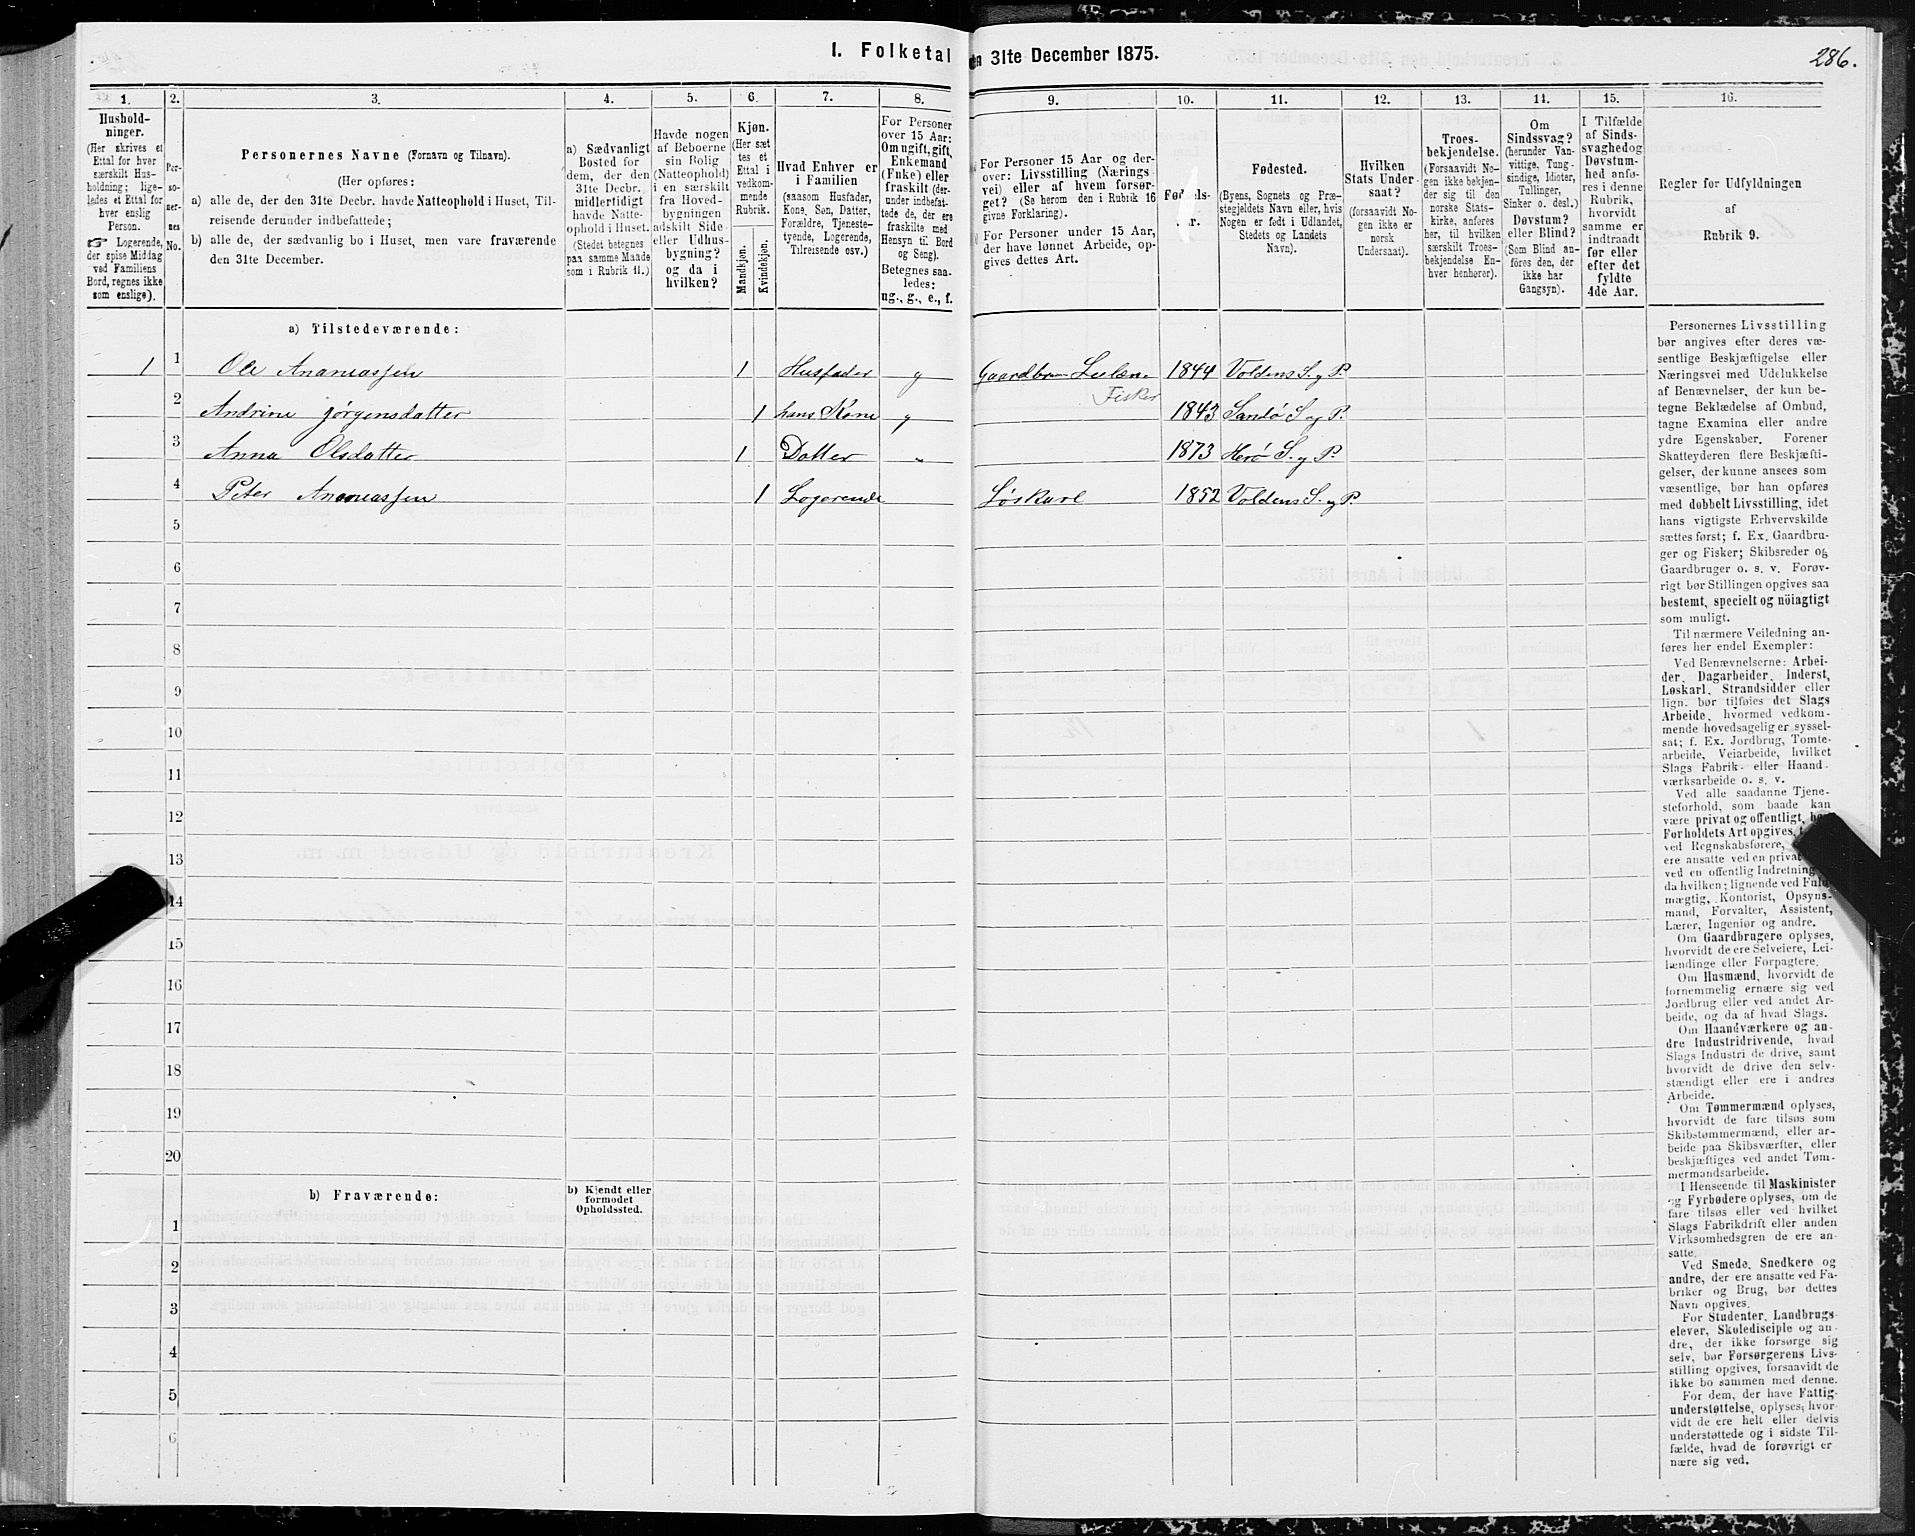 I. Folketal
den 31te December 1875.
286.
1.
2.
3.
4.
5.
6.
7.
8.
9.
10.
11.
12.
13.
14.
15.
16.
Hushold-
ninger.
(Her skrives et
Ettal for hver
særskilt Hus-
holdning; lige-
ledes et Ettal for
hver enslig
Person.
☞ Logerende,
der spise Middag
ved Familiens
Bord, regnes ikke
som enslige).
Per-
so-
ner-
nes
No.
Personernes Navne (Fornavn og Tilnavn).
(Her opføres:
a) alle de, der den 31te Decbr. havde Natteophold i Huset, Til-
reisende derunder indbefattede;
b) alle de, der sædvanlig bo i Huset, men vare fraværende
den 31te December.
a) Sædvanligt
Bosted for
dem, der den
31te Decbr.
midlertidigt
havde Natte-
ophold i Huset.
(Stedet betegnes
paa samme Maade
som i Rubrik 11.)
Havde nogen
af Beboerne
sin Bolig
(Natteophold)
i en særskilt
fra Hoved-
bygningen
adskilt Side-
eller Udhus-
bygning?
og da i
hvilken?
Kjøn.
(Her sæt-
tes et
Ettal i
vedkom-
mende
Rubrik.
Mandkjøn.
Kvindekjøn.
Hvad Enhver er
i Familien
(saasom Husfader,
Kone, Søn, Datter,
Forældre, Tjeneste-
tyende, Logerende,
Tilreisende osv.)
For Personer
over 15 Aar:
Om ugift, gift,
Enkemand
(Enke) eller
fraskilt (der-
under indbefat-
tede de, der ere
fraskilte med
Hensyn til Bord
og Seng).
Betegnes saa-
ledes:
ug., g., e., f.
For Personer 15 Aar og der-
over: Livsstilling (Nærings-
vei) eller af hvem forsør-
get? (Se herom den i Rubrik 16
givne Forklaring).
For Personer under 15 Aar,
der have lønnet Arbeide, op-
gives dettes Art.
Fødsels-
Aar.
Fødested.
(Byens, Sognets og Præ-
stegjeldets Navn eller, hvis
Nogen er født i Udlandet,
Stedets og Landets
Navn).
Hvilken
Stats Under-
saat?
(forsaavidt No-
gen ikke er
norsk
Undersaat).
Troes-
bekjendelse.
(Forsaavidt No-
gen ikke bekjen-
der sig til den
norske Stats-
kirke, anføres
her, til hvilken
særskilt Troes-
bekjendelse En-
hver henhører).
Om
Sindssvag?
(herunder Van-
vittige, Tung-
sindige, Idioter,
Tullinger,
Sinker o. desl.)
Døvstum?
eller Blind?
(Som Blind an-
føres den, der
ikke har
Gangsyn).
I Tilfælde
af Sinds-
svaghed og
Døvstum-
hed anfø-
res i denne
Rubrik,
hvorvidt
samme er
indtraadt
før eller
efter det
fyldte
4de Aar.
Regler for Udfyldningen
af
Rubrik 9.
a) Tilstedeværende:
1 1 Ole Ananiassen 1 Husfader g Gaardbru Leilæn 1844 Voldens S. og P.
Fisker
2 Andrine Jørgensdatter 1 hans Kone g 1843 Sandø S. og P.
3 Anna Olsdatter 1 Datter „ 1873 Herø S. og P.
4 Peter Ananiassen 1 Logerende Løskarl 1852 Voldens S. og P.
5
6
7
8
9
10
11
12
13
14
15
16
17
18
19
20
b) Fraværende:
b) Kjendt eller
formodet
Opholdssted.
1
2
3
4
5
6
Personernes Livsstilling
bør angives efter deres væ-
sentlige Beskjæftigelse eller
Næringsvei med Udelukkelse
af Benævnelser, der kun be-
tegne Beklædelse af Ombud,
tagne Examina eller andre
ydre Egenskaber. Forener
Skatteyderen flere Beskjæfti-
gelser, der kunne ansees som
væsentlige, bør han opføres
med dobbelt Livsstilling, idet
hans vigtigste Erhvervskilde
sættes først; f. Ex. Gaardbru-
ger og Fisker; Skibsreder og
Gaardbruger o. s. v. Forøv-
rigt bør Stillingen opgives saa
bestemt, specielt og nöiagtigt
som muligt.
Til nærmere Veiledning an-
føres her endel Exempler:
Ved Benævnelserne: Arbei-
der, Dagarbeider, Inderst,
Løskarl, Strandsidder eller
lign. bør tilføies det Slags
Arbeide, hvormed vedkom-
mende hovedsagelig er syssel-
sat; f. Ex. Jordbrug, Tomte-
arbeide, Veiarbeide, hvilket
Slags Fabrik- eller Haand-
værksarbeide o. s. v.
Ved alle saadanne Tjene-
steforhold, som baade kan
være privat og offentligt, bør
Forholdets Art opgives,
ved Regnskabsførere,
ere ansatte ved en privat
ved en offentlig Indretning
da hvilken; lignende ved Fuld-
mægtig, Kontorist, Opsyns-
mand, Forvalter, Assistent,
Lærer, Ingeniør og andre.
Om Gaardbrugere oplyses,
hvorvidt de ere Selveiere, Lei-
lændinge eller Forpagtere.
Om Husmænd, hvorvidt de
fornemmelig ernære sig ved
Jordbrug eller ved andet Ar-
beide, og da af hvad Slags.
Om Haandværkere og an-
dre Industridrivende, hvad
Slags Industri de drive, samt
hvorvidt de drive den selv-
stændigt eller ere i andres
Arbeide.
Om Tømmermænd oplyses,
hvorvidt de fare tilsøs som
Skibstømmermænd, eller ar-
beide paa Skibsværfter, eller
beskjæftiges ved andet Tøm-
mermandsarbeide.
I Henseende til Maskinister
og Fyrbødere oplyses, om de
fare tilsøs eller ved hvilket
Slags Fabrikdrift eller anden
Virksomhedsgren de ere an-
satte.
Ved Smede, Snedkere og
andre, der ere ansatte ved Fa-
briker og Brug, bør dettes
Navn opgives.
For Studenter, Landbrugs-
elever, Skoledisciple og an-
dre, der ikke forsørge sig
selv, bør Forsørgerens Livs-
stilling opgives, forsaavidt de
ikke bo sammen med denne.
For dem, der have Fattig-
understøttelse, oplyses, hvor-
vidt de ere helt eller delvis
understøttede og i sidste Til-
fælde, hvad de forøvrigt er
nære sig ved.